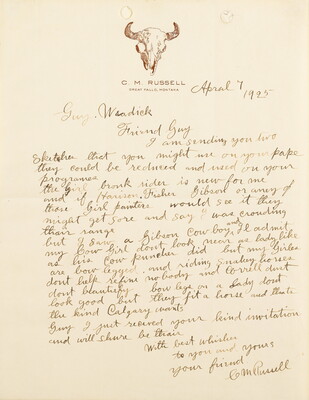 C. M. RUSSELL
GREAT FALLS, MONTANA
April 7 1925
Guy. Weadick
Friend Guy
I am sending you two
sketches that you might use on your pape
they could be reduced and used on your
programes
the girl bronk rider is new for me
and if Harrison Fisher Gibson or any of
those girl painters would see it they
might get sore and say I was crouding
thair range
but I saw a Gibson Cow boy and Il admit
my Cow Girl dont look near as lady like
as his Cow puncher did but my Girles
are bow legged and riding snakey horses
dont help refine nobody and correll dust
dont blantify bow legs on a Lady dont
look good but they fit a horse and thats
the kind Calgary wants
Guy I just recived your kind invitation
and will shure be thair
With best whishes
to you and yours
your friend
C M Russell